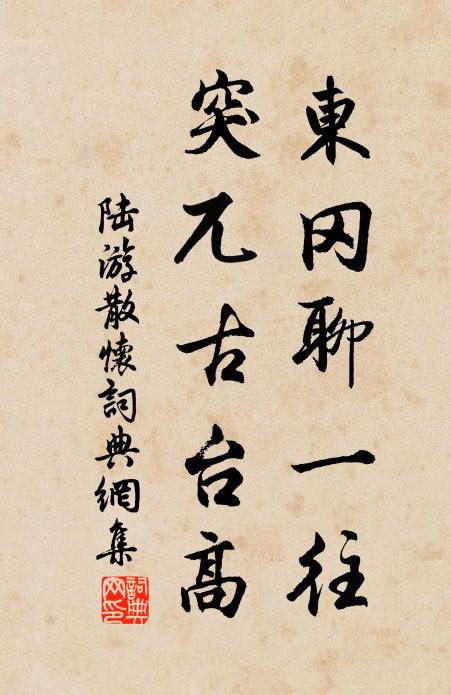 東冈聊一往
突兀古台高
陆游散懷詞典網集
詞典
网印